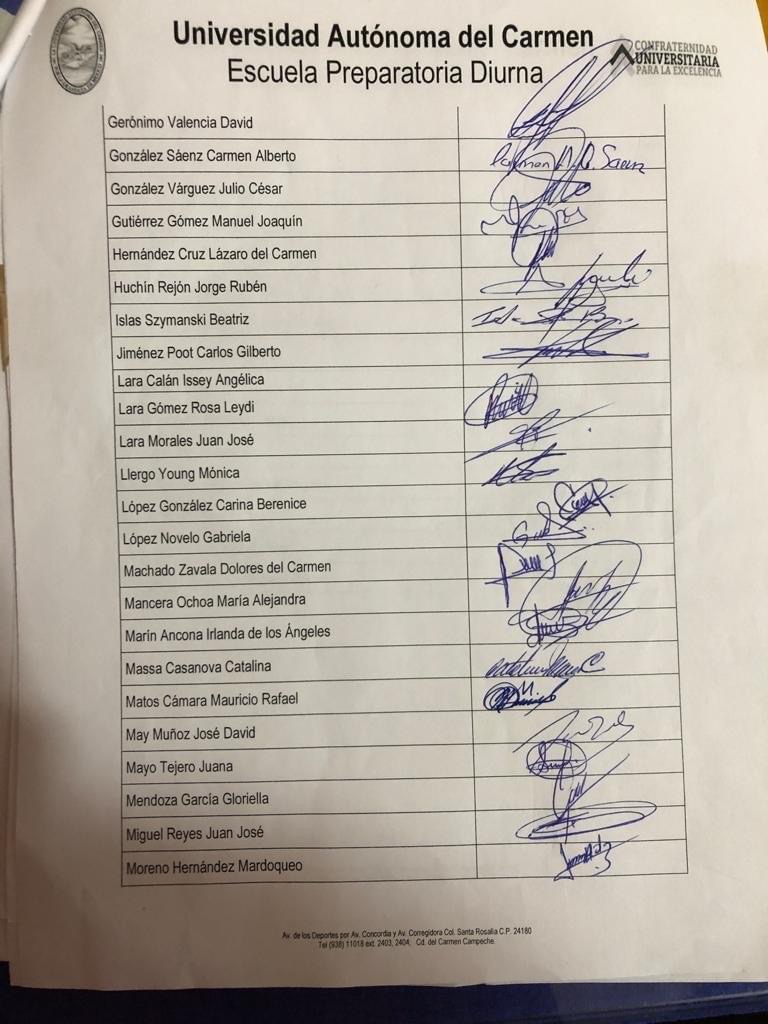 Universidad Autónoma del Carmen
Escuela Preparatoria Diurna
CONFRATERNIDAD
UNIVERSITARIA
PARA LA EXCELENCIA
Gerónimo Valencia David
González Sáenz Carmen Alberto
González Várguez Julio César
Gutiérrez Gómez Manuel Joaquín
Hernández Cruz Lázaro del Carmen
Huchín Rejón Jorge Rubén
Islas Szymanski Beatriz
Jiménez Poot Carlos Gilberto
Lara Calán Issey Angélica
Lara Gómez Rosa Leydi
Lara Morales Juan José
Llergo Young Mónica
López González Carina Berenice
López Novelo Gabriela
Machado Zavala Dolores del Carmen
Mancera Ochoa María Alejandra
Marín Ancona Irlanda de los Ángeles
Massa Casanova Catalina
Matos Cámara Mauricio Rafael
May Muñoz José David
Mayo Tejero Juana
Mendoza García Gloriella
Miguel Reyes Juan José
Moreno Hernández Mardoqueo
Av. de los Deportes por Av. Concordia y Av. Corregidora Col. Santa Rosalía C.P. 24180
Tel (938) 11018 ext. 2403, 2404, Cd. del Carmen Campeche.